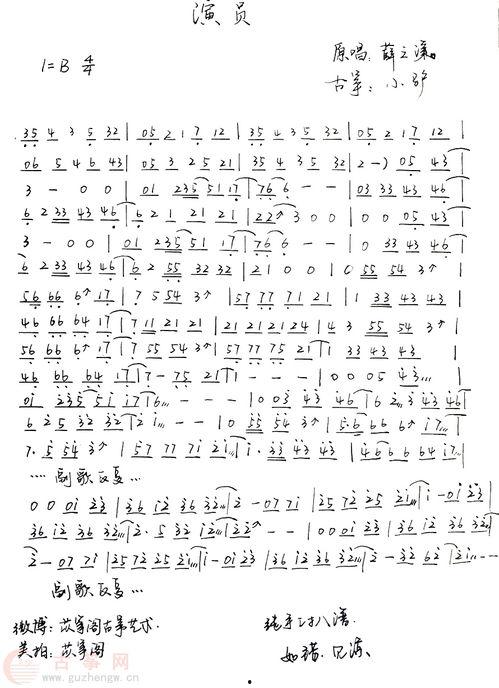 演员
1=B 4/4
原唱:薛之谦
古筝:小
.35 4 3 5 32 | 05 2 1 7 12 | 35 4 3 5 32 | 05 2 1 7 12
06 5 4 6 43 | 05 3 2 5 21 | 35 4 3 5 32 | 2 - ) 05 43 |
3 - 0 0 | 01 235 51 17 | 76 6 - - | 03 33 43 46 |
6 2 33 43 46 | 6 2 1 21 21 | 22 3 0 0 | 0 0 05 43 |
3 - 0 0 | 01 235 51 17 | 76 6 - - | 0 33 43 46 |
6 2 33 43 46 | 6 2 55 32 32 | 2 1 0 0 | 0 55 54 3 |
56 66 6 17 | 7 5 54 3 | 57 77 71 21 | 1 33 43 43 |
46 66 64 17 | 7 11 21 21 | 21 21 21 24 | 4 3 55 54 3 |
56 66 6 17 | 7 55 54 3 | 57 77 75 21 | 1 33 43 43
46 66 64 17 | 7 - 75 21 | 1 - - - | 0 0 05 43
01 235 51 17 | 6 - - - | 0 03 43 46 | 6 2 3 43 43
6 2 5 32 32 | 2 1 - - | 0 55 54 3 | 56 66 6 17
7. 5 54 3 | 57 77 71 21 | 1. 33 43 43 | 46 66 64 17
.... 副歌反复...
0 0 01 23 | 36 12 36 32 | 2 - 07 71 | 25 72 25 21 | 1 - 01 23 |
36 12 36 32 | 2. 5 32 12 | 2 - - | 0 0 01 23 | 36 12 36 32 |
2 - 07 71 | 25 72 25 21 | 1 - 01 23 | 36 12 36 32 | 2 - 32 62 | 21 ...
副歌反复...
微博:筝阁古筝艺术.
美拍:筝阁
纯手工扒谱.
如错.见谅
古筝网
www.guzhengw.cn